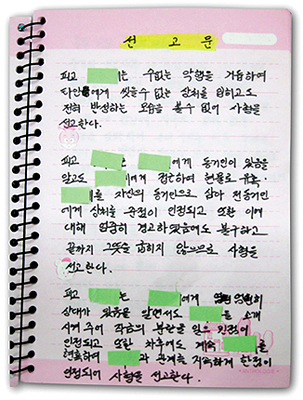 선고문
피고 는 수없는 악행을 거듭하여
타인에게 씻을수 없는 상처를 입히고도
전혀 반성하는 모습을 볼수 없어 사형을
선고한다.
피고 는 에게 동기인이 있음을
알고도 에게 접근하여 현물로 유혹.
를 자신의 동기인으로 삼아 전동기인
에게 상처를 준점이 인정되고 또한 이에
대해 엄중히 경고하였음에도 불구하고
끝까지 그뜻을 굽히지 않으므로 사형을
선고한다.
피고 는 에게 엄연히
상대가 있음을 알면서도 를 소개
시켜 주어 작금의 분란을 일으 인정이
인정되고 또한 차후에도 계속 를
현혹하여 과 관계를 지속하게 한점이
인정되어 사형을 선고한다.